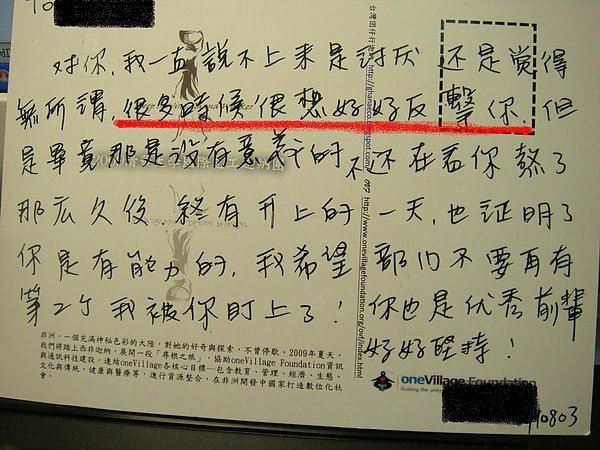 对你,我一直說不上来是討厌 还是觉得
無所謂,很多時候很想好好反擊你,但
是畢竟那是没有意義的,不过在看你熬了
那広久後,終有升上的一天,也証明了
你是有能力的,我希望部门不要再有
第二个我被你盯上了! 你也是优秀前輩
好好堅持!
台灣囝仔行
http://www.onevillagefoundation.org/ovf/index.html
非洲,一個充滿神秘色彩的大陸,對她的好奇與探索,不曾停歇。2009年夏天,
我們將踏上西非迦納,展開一段「尋根之旅」,協助oneVillage Foundation資訊
與通訊科技建設,連結oneVillage各核心目標—包含教育、管理、經濟、生態、
文化與傳統、健康與醫療等,進行資源整合,在非洲開發中國家打造數位化社
會。
oneVillage Foundation
Guiding the unity
110803